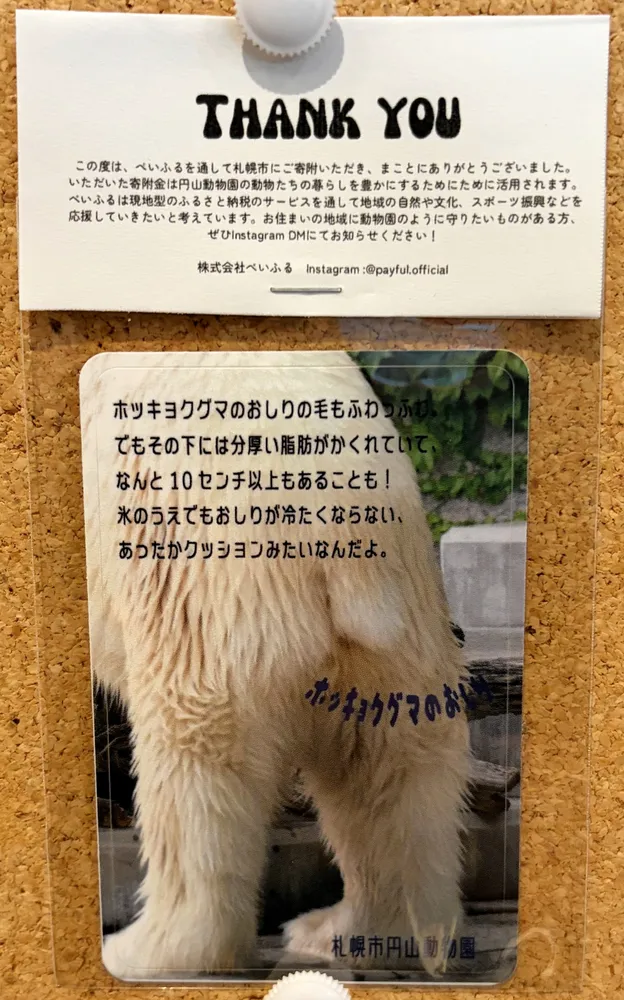 THANK YOU
この度は、ぺいふるを通して札幌市にご寄附いただき、まことにありがとうございました。
いただいた寄附金は円山動物園の動物たちの暮らしを豊かにするためにために活用されます。
ぺいふるは現地型のふるさと納税のサービスを通して地域の自然や文化、スポーツ振興などを
応援していきたいと考えています。お住まいの地域に動物園のように守りたいものがある方、
ぜひInstagram DMにてお知らせください！
株式会社ぺいふる Instagram :@payful.official
ホッキョクグマのおしりの毛もふわっふわ。
でもその下には分厚い脂肪がかくれていて、
なんと10センチ以上もあることも！
氷のうえでもおしりが冷たくならない、
あったかクッションみたいなんだよ。
ホッキョクグマのおしり
札幌市円山動物園